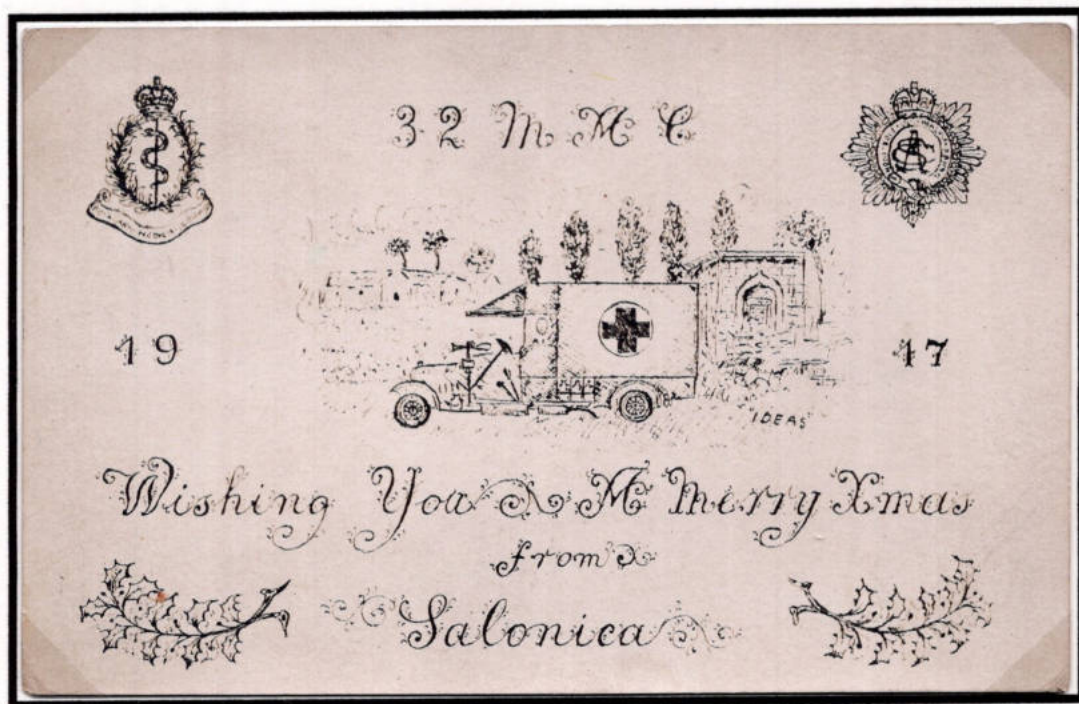 32 M A C
19 17
IDEAS
Wishing You A Merry Xmas
from
Salonica